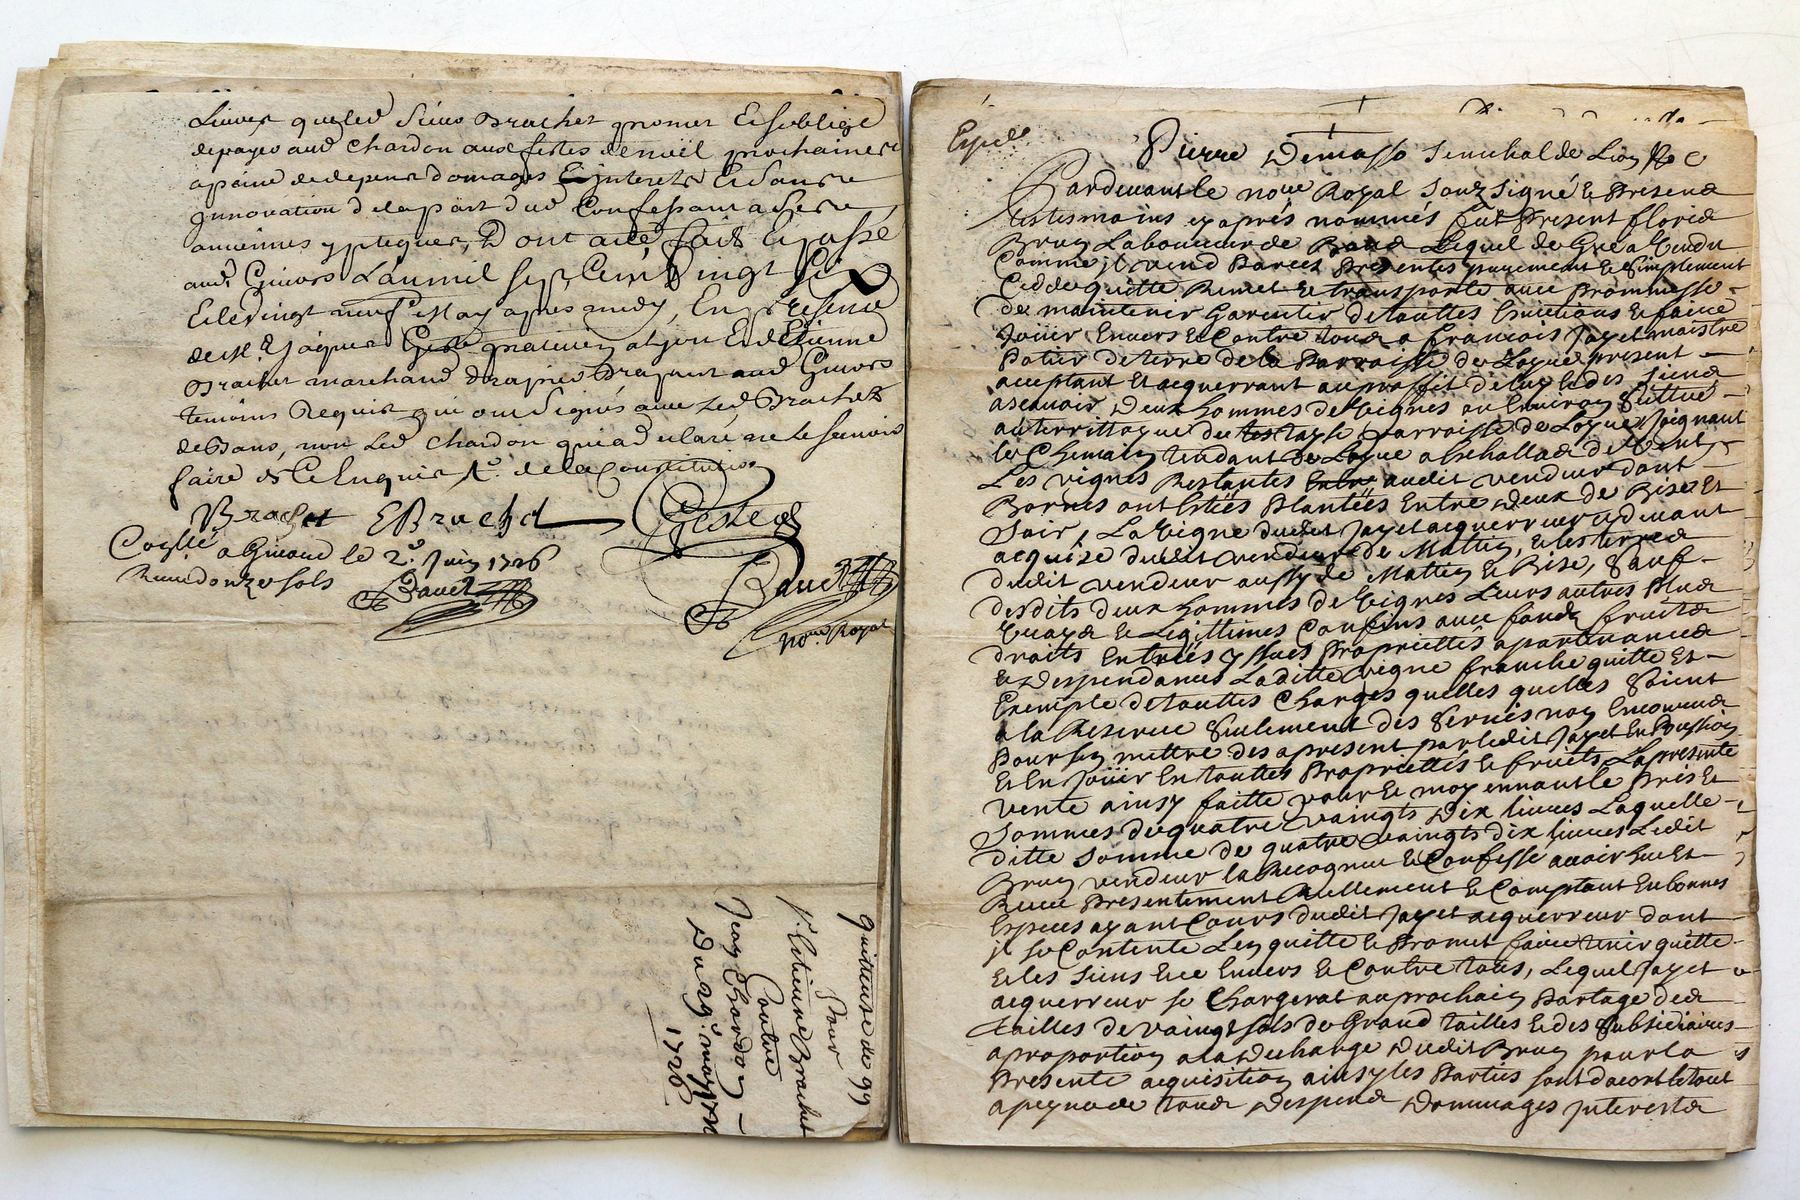 Livres que led Sieur Brachet promet Et soblige
de payer aud Chardon aux festes de noël prochaines
a peine de depens domages Et interets Et sans
innovation de la part dud Confessant a
anciennes ypteques, Dont acte, fait Et passé
aud Givors Lan mil sept Cent Vingt Six
Et le Vingt neuf May apres midy, En presence
de Me Jaques Geste praticien a lyon Et d'Etienne
Brachet marchand drapier Drapant aud Givors
temoins Requis qui ont signés avec Led Brachet
non Led Chardon qui a declaré ne le scavoir
faire de Ce Enquis de la Constitution
Brachet EBrachet Geste
Conllé a Givord le 2e Juin 1726
Receu douze sols
Bauet Bauet
Nore Royal
quittance de 99
Pour
Sr. Etienne Brachet
Contre
Jean Chardon
Du 29e may
1726
Expde
Pierre Demasso Senechal de Lion &c
Pardevant le nore Royal Souz Signé & Presend
testesmoins cy aprés nommés fut Present florid
Brun Laboureur de Lequel de Gré a Vendu
Comme il vend Par ces Presentes purement & Simplement
Cedde quitte Remet & transporte avec Prommesse
de maintenir Garentir de touttes Evictions & faire
Jouir Envers & Contre tous a francois Jayet maistre
Potier de terre de la Parroisse de Loyre present
acceptant Et acquerrant au proffit de luy & des Siens
ascavoir Deux hommes de Vignes ou Environ Scittué
au territtoyre du Parroisse de Loyre Joignant
le Chemain tendant de Loyre a de Vent
Les vignes Restantes audit vendeur dont
Bornes ont Estées Plantées Entre deux de Bise Et
Soir, La Vigne dudit Jayet acquerreur
acquise dudit vendeur de Mattin, & les terres
dudit vendeur aussy de Mattin & Bise, Sauf
desdits deux hommes de Vignes Leurs autres Plus
Vrays & Legittimes Confins avec fonds fruits
droits Entrées yssues Proprietés apartenances
& Despendances Laditte vigne franche quitte Et
Exempte de touttes Charges quelles quelles Soient
a la Reserve Seulement des Servis non Encourus
Pour sen mettre des apresent par ledit Jayet En Possession
Et En Jouir En touttes Proprietés & fruits La presente
vente ainsy faitte pour & moyennant le Pris Et
Somme de quatre vaingts Dix livres Laquelle
ditte Somme de quatre vaingts dix livres Ledit
Brun vendeur la Recognue & Confesse avoir Eue Et
Receu Presentement Reellement & Comptant En bonnes
Especes ayant Cours dudit Jayet acquerreur dont
il se Contente Len quitte & Promet faire tenir quitte
& les Siens Envers & Contre tous, Lequel Jayet
acquerreur se Chargerat au prochain Partage des
tailles de vaingt sols de Grand tailles & des Subsidiaires
a proportion a la Decharge Dudit Brun pour la
Presente acquisition ainsy les Parties sont dacort le tout
a peyne de tous Despens Dommages Interests